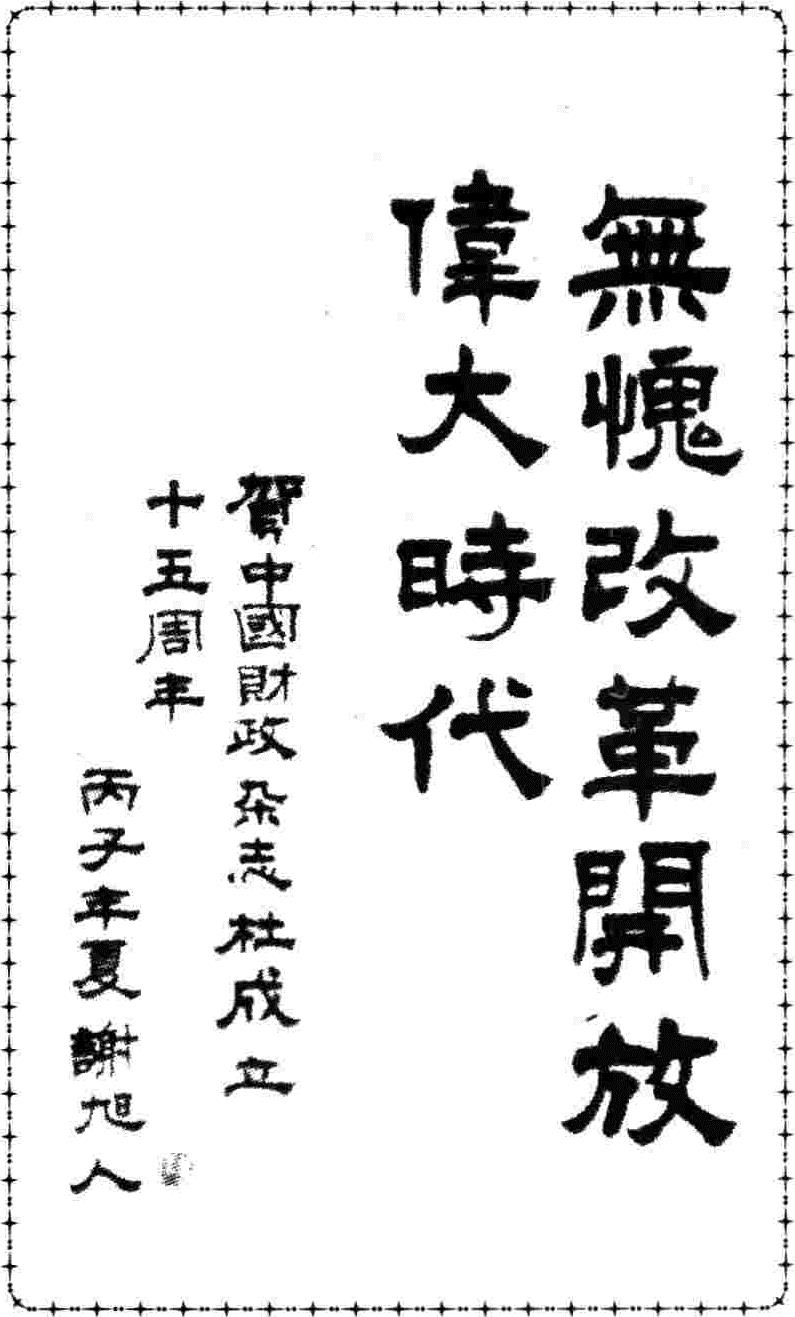 無愧改革開放
偉大時代
賀中國財政杂志社成立
十五周年
丙子年夏 謝旭人